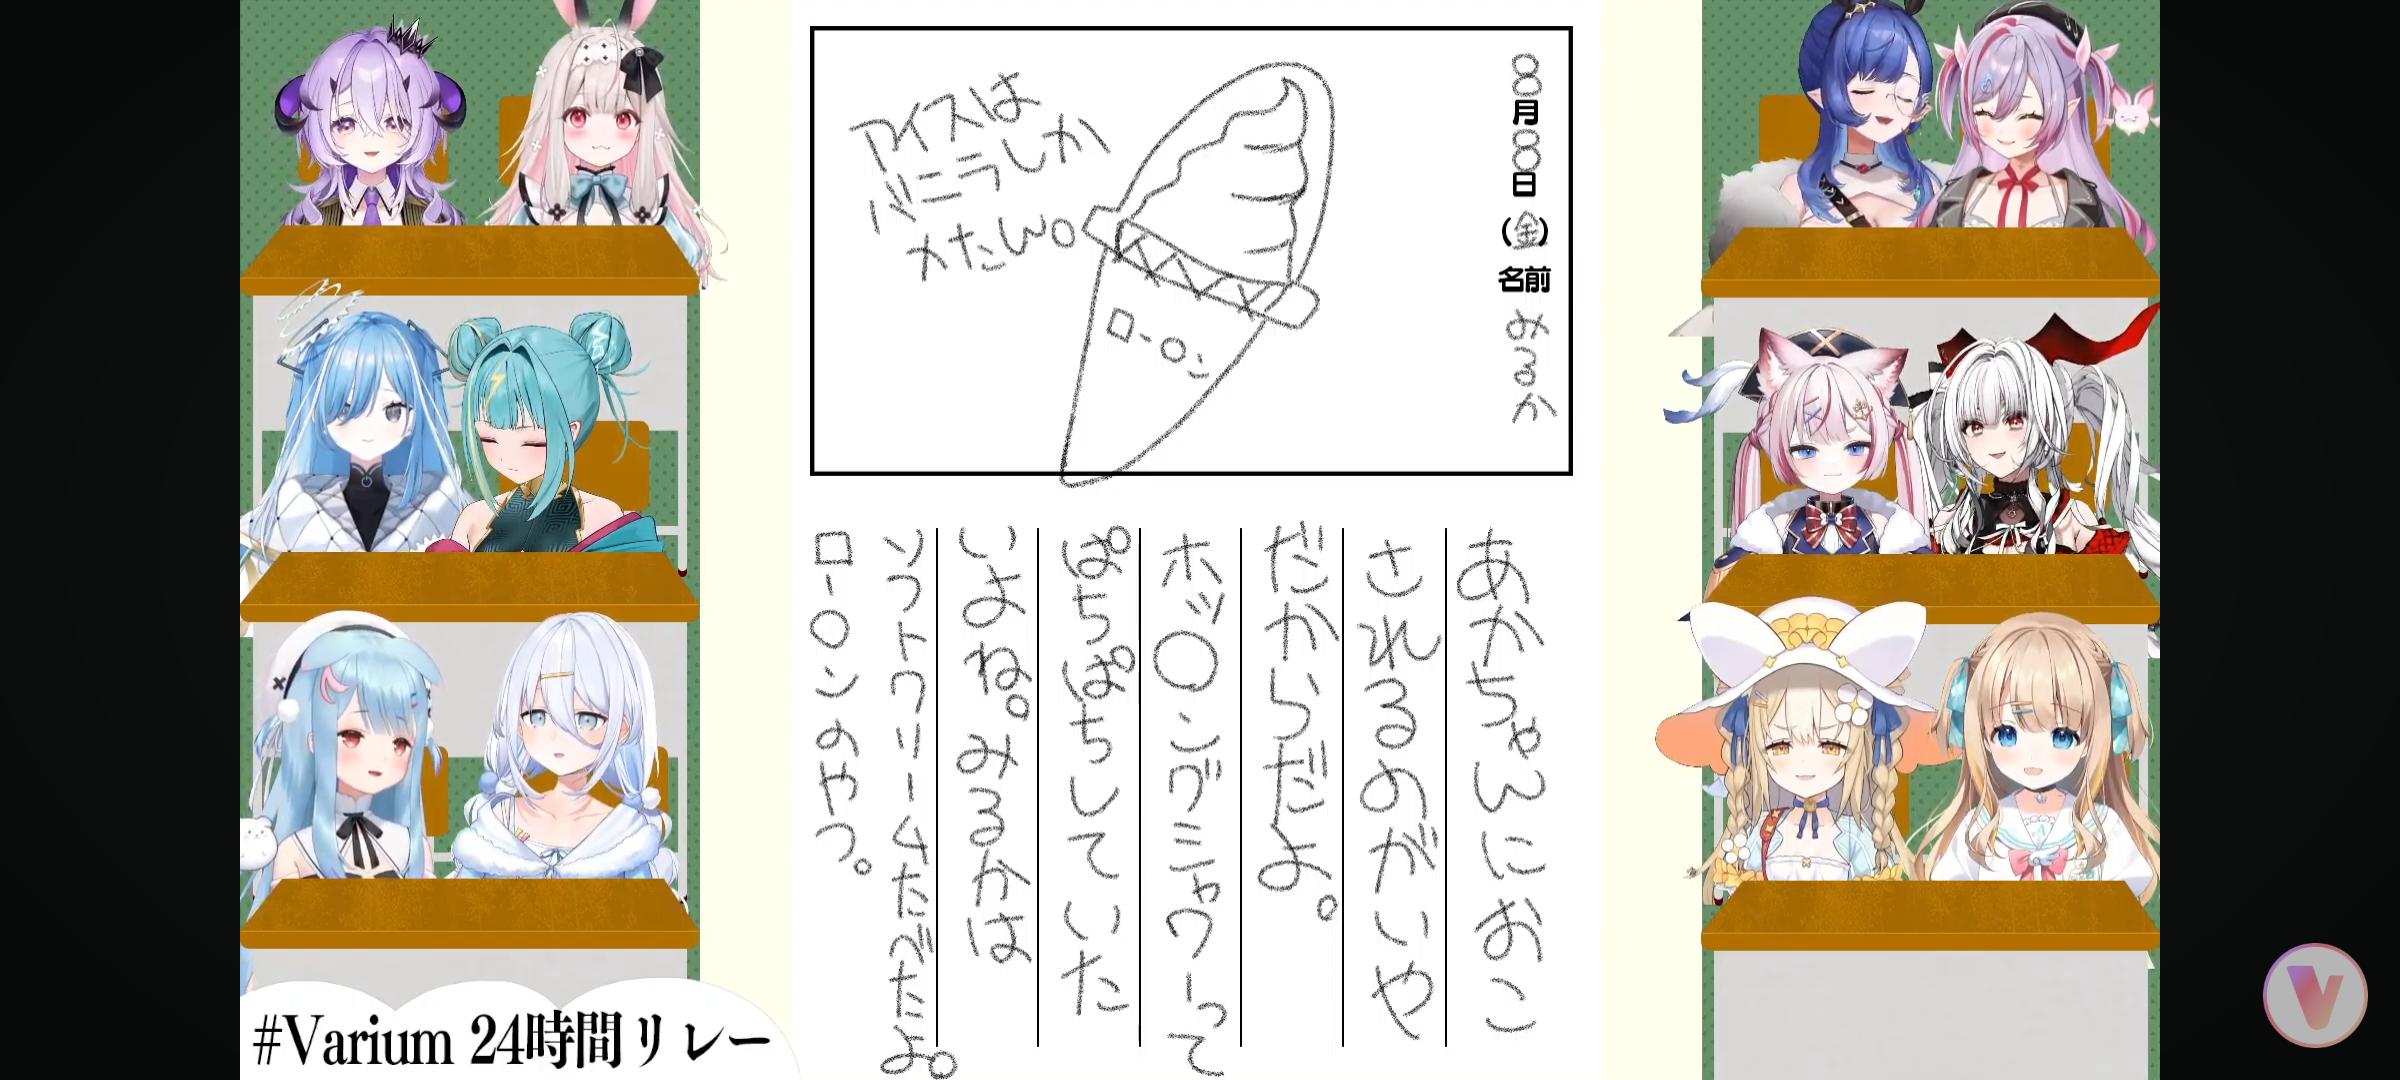 8月8日(金)名前 みるか
アイスは
バニラしか
メたん。
ロ-○ン
あかちゃんにおこ
されるのがいや
だからだよ。
ホッ○ングシャワーって
ぱちぱちしていた
いよね。みるかは
ソフトクリームたべたよ。
ロー○ンのやつ。
#Varium 24時間リレー
V